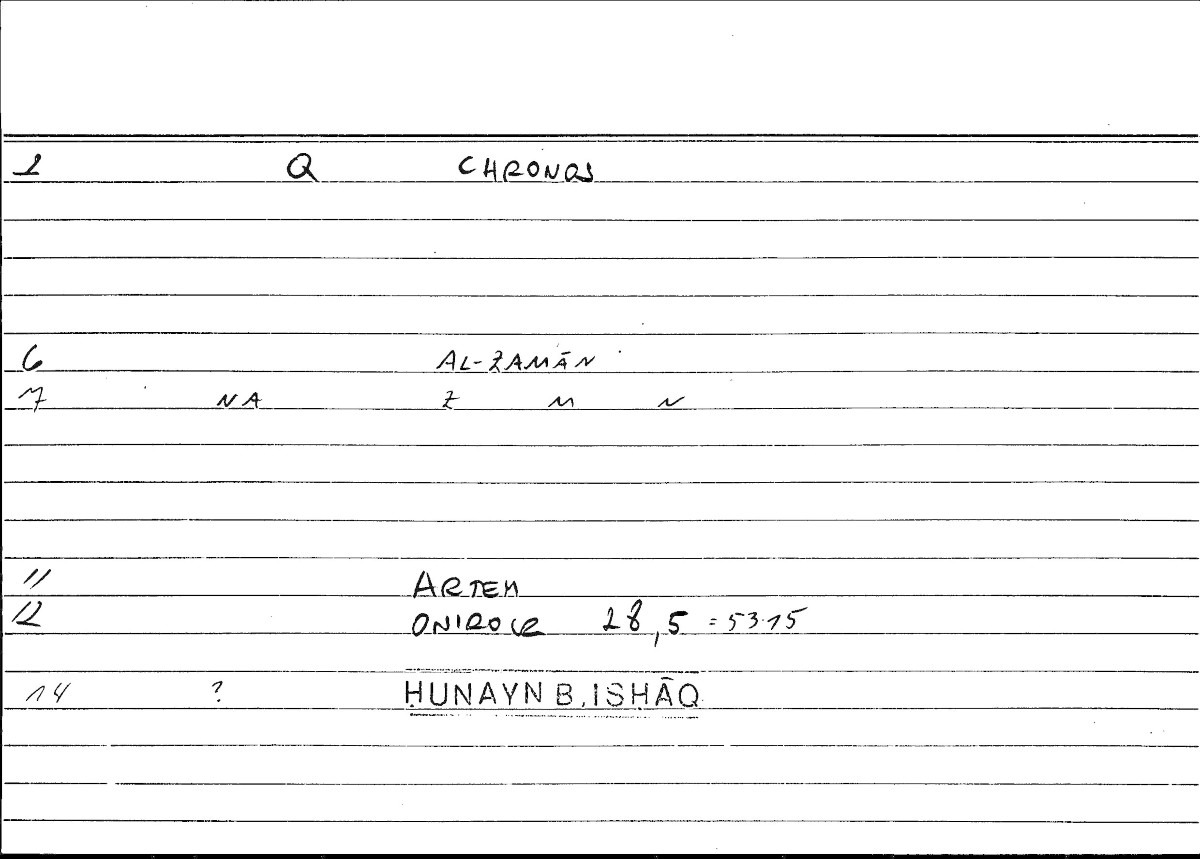 1 Q CHRONOS
6 AL-ZAMĀN
7 NA Z M N
11 ARTEM
12 ONIROCR 28,5 = 53.15
14 ? ḤUNAYN B. ISḤĀQ